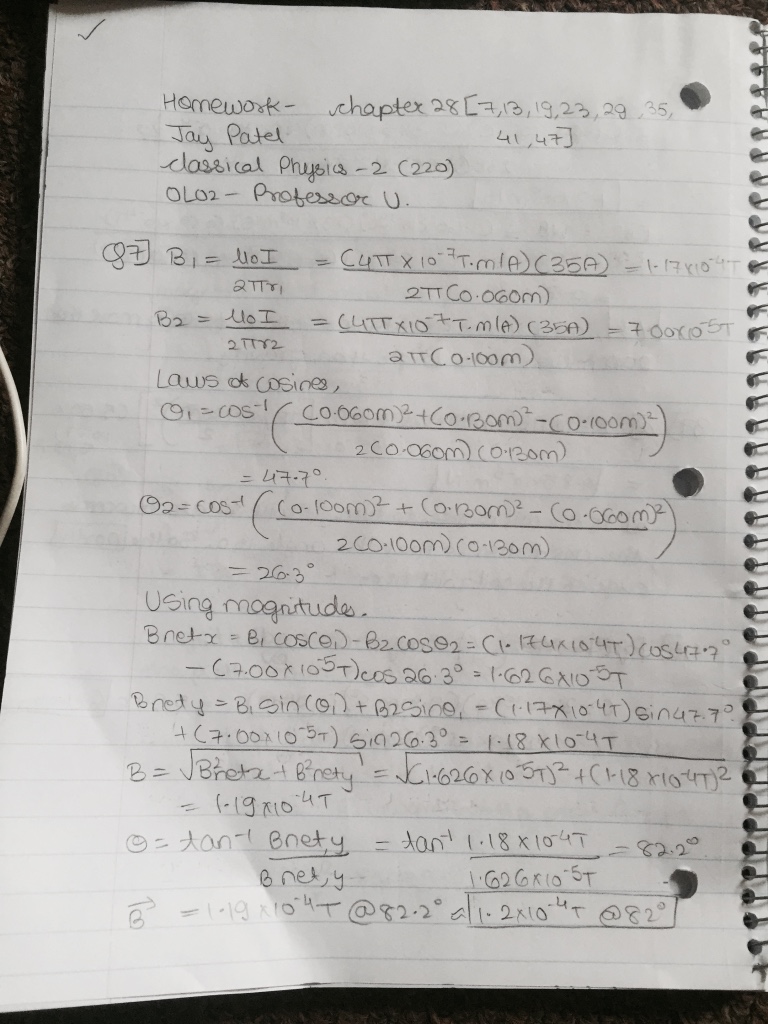 ✓
Homework - chapter 28 [7,13,19,23,29,35,
Jay Patel 41,47]
classical Physics - 2 (220)
OL02 - Professor U.
Q7] B₁ = μ₀I / 2πr₁ = (4π × 10⁻⁷ T.m/A) (35A) / 2π(0.060m) = 1.17×10⁻⁴T
B₂ = μ₀I / 2πr₂ = (4π×10⁻⁷ T.m/A) (35A) / 2π(0.100m) = 7.00×10⁻⁵T
Laws of cosines,
θ₁ = cos⁻¹ ( (0.060m)² + (0.130m)² - (0.100m)² / 2(0.060m) (0.130m) )
= 47.7°
θ₂ = cos⁻¹ ( (0.100m)² + (0.130m)² - (0.060m)² / 2(0.100m) (0.130m) )
= 26.3°
Using magnitudes.
Bnetx = B₁ cos(θ₁) - B₂ cosθ₂ = (1.174×10⁻⁴T) cos47.7°
- (7.00×10⁻⁵T) cos 26.3° = 1.626×10⁻⁵T
Bnety = B₁ sin(θ₁) + B₂ sinθ₁ = (1.17×10⁻⁴T) sin47.7°
+ (7.00×10⁻⁵T) sin26.3° = 1.18 × 10⁻⁴T
B = √(B²netx + B²nety) = √((1.626×10⁻⁵T)² + (1.18×10⁻⁴T)²)
= 1.19×10⁻⁴T
θ = tan⁻¹ Bnet,y / Bnet,y = tan⁻¹ 1.18×10⁻⁴T / 1.626×10⁻⁵T = 82.2°
B⃗ = 1.19×10⁻⁴T @82.2° ≈ 1.2×10⁻⁴T @82°